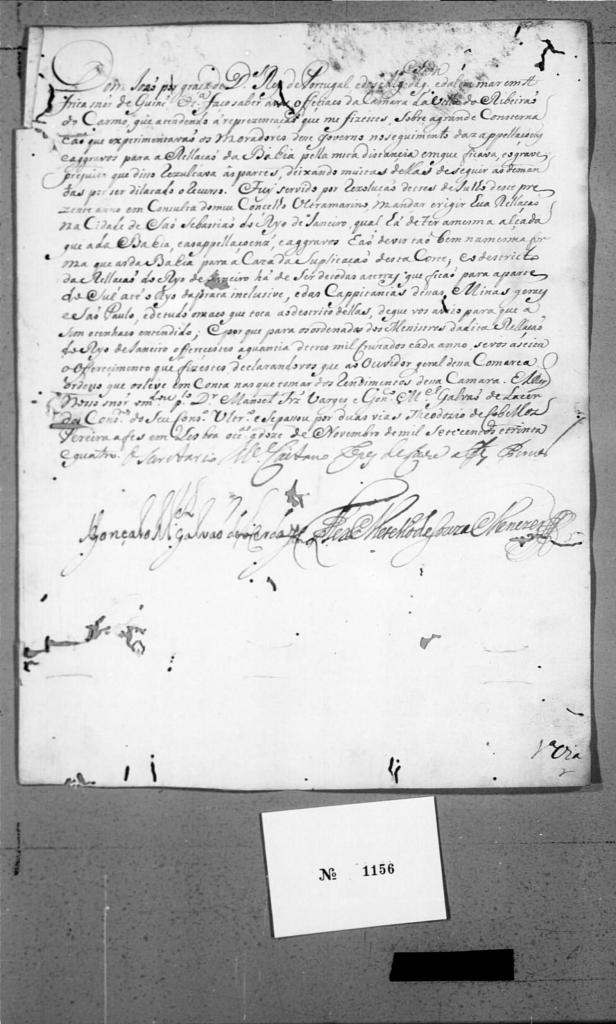 Dom João por graça de D.s Rey de Portugal, e dos Alg. daq. e dalém mar em A
frica s.nor de Guiné &c.a faço saber a vos officiaes da Camara da Villa do Ribeirão
do Carmo, que attendendo á reprezentação que me fizestes, sobre a grande Consterna
ção que experimentavão os moradores desse Governo no seguimento das appellaçoens,
e aggravos para a Rellação da Bahia pella muita distancia em que ficava, e o grave
prejuizo que disso rezultava ás partes, deixando muitas dellas de seguir as deman
das por ser dilatado o recurso. Fuy servido por rezolução de tres de Julho deste pre
zente anno em Consulta do meu Conselho Ultramarino, mandar erigir hua Rellação
na Cidade de São Sebastião do Ryo de Janeiro, a qual há de ter a mesma alçada
que a da Bahia, e as appellaçoens, e aggravos hão de vir tão bem na mesma for
ma que as da Bahia para a Caza da Suplicação desta Corte; e o destricto
da Rellação do Ryo de Janeiro há de ser de todas as terras que ficão para a parte
do Sul até o Ryo da prata inclusive, e das Cappitanias das Minas geraes
e São Paulo, e de tudo o mais que toca ao destricto dellas, de que vos avizo para que a
sim o tenhaes entendido; E por que para os ordenados dos Ministros da dita Rellação
do Ryo de Janeiro offerecestes a quantia de tres mil cruzados cada anno, se vos aceita
o offerecimento que fizestes declarandovos que ao Ouvidor geral dessa Comarca
ordeno que os leve em Conta nas que tomar dos rendimentos dessa Camara. El Rey
Nosso s.nor o m.dou pello D.r Manoel Frz Varges e Gon.o M.el Galvão de Lacer
da Cons.os do Seu Cons.o Ultr.o e se passou por duas vias. Theodozio de Cobellos
Pereira a fes em Lisboa occ.al a doze de Novembro de mil Sete centos e trinta
e quatro. O Secretario M.el Caetano Lopes de Lavre a fez escrever
Gonçalo M.el Galvão de Lacerda
1.a via
No 1156